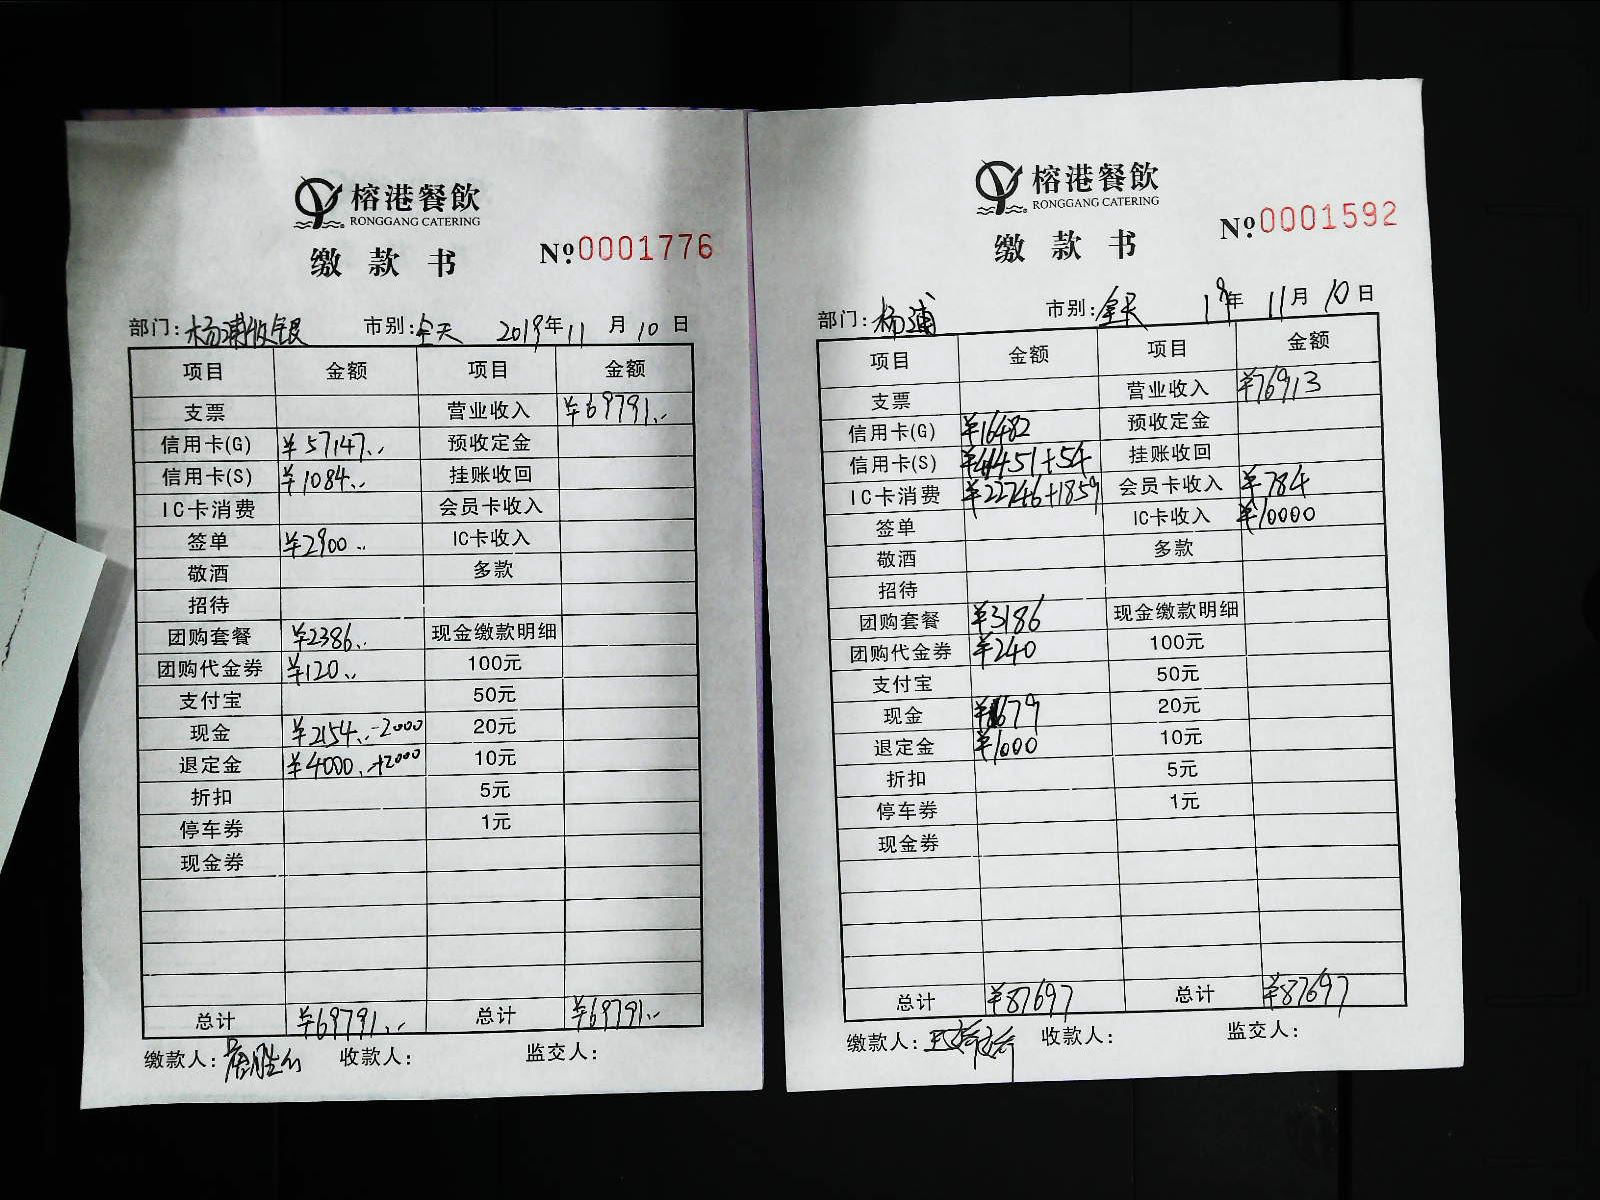 榕港餐飲
RONGGANG CATERING
缴款书
№0001776
部门:杨浦收银 市别:全天 2019年11月10日
项目 金额 项目 金额
支票 营业收入 ¥69791..
信用卡(G) ¥57147.. 预收定金
信用卡(S) ¥1084.. 挂账收回
IC卡消费 会员卡收入
签单 ¥2900.. IC卡收入
敬酒 多款
招待
团购套餐 ¥2386.. 现金缴款明细
团购代金券 ¥120.. 100元
支付宝 50元
现金 ¥2154..-2000 20元
退定金 ¥4000..+2000 10元
折扣 5元
停车券 1元
现金券
总计 ¥69791.. 总计 ¥69791..
缴款人: 收款人: 监交人:
榕港餐飲
RONGGANG CATERING
缴款书
№0001592
部门:杨浦 市别:全天 19年11月10日
项目 金额 项目 金额
支票 营业收入 ¥76913
信用卡(G) ¥16482 预收定金
信用卡(S) ¥41451+54 挂账收回
IC卡消费 ¥22746+1859 会员卡收入 ¥784
签单 IC卡收入 ¥10000
敬酒 多款
招待
团购套餐 ¥3186 现金缴款明细
团购代金券 ¥240 100元
支付宝 50元
现金 ¥679 20元
退定金 ¥1000 10元
折扣 5元
停车券 1元
现金券
总计 ¥87697 总计 ¥87697
缴款人: 收款人: 监交人: